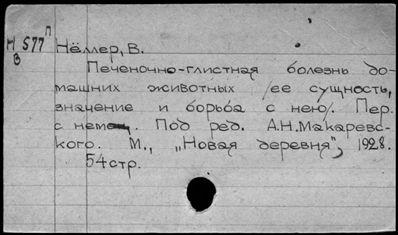 Н 577 П
В
Нёллер, В.
Печеночно-глистная болезнь до-
машних животных /ее сущность,
значение и борьба с нею/. Пер.
с немец. Под ред. А.Н.Макаревс-
кого. М., „Новая деревня", 1928.
54стр.